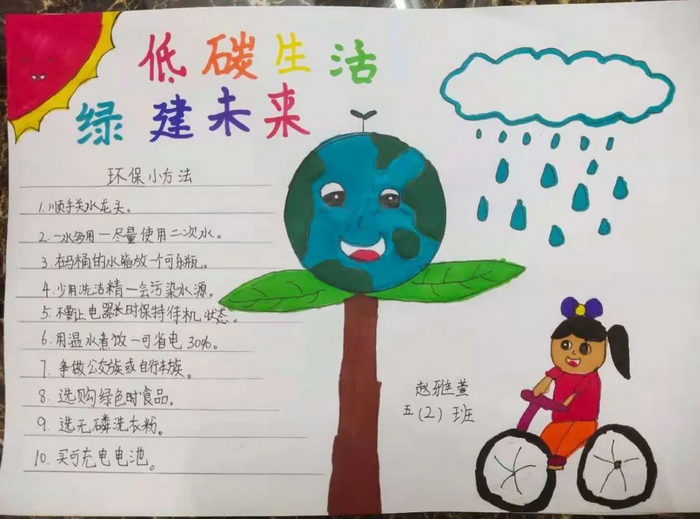 低碳生活
绿建未来
环保小方法
1. 顺手关水龙头。
2. 一水多用一尽量使用二次水。
3. 在马桶的水箱放一个可乐瓶。
4. 少用洗洁精一会污染水源。
5. 不要让电器长时保持待机状态。
6. 用温水煮饭一可省电30%。
7. 争做公交族或自行车族。
8. 选购绿色时食品。
9. 选无磷洗衣粉。
10. 买可充电电池。
赵雅萱
五(2)班